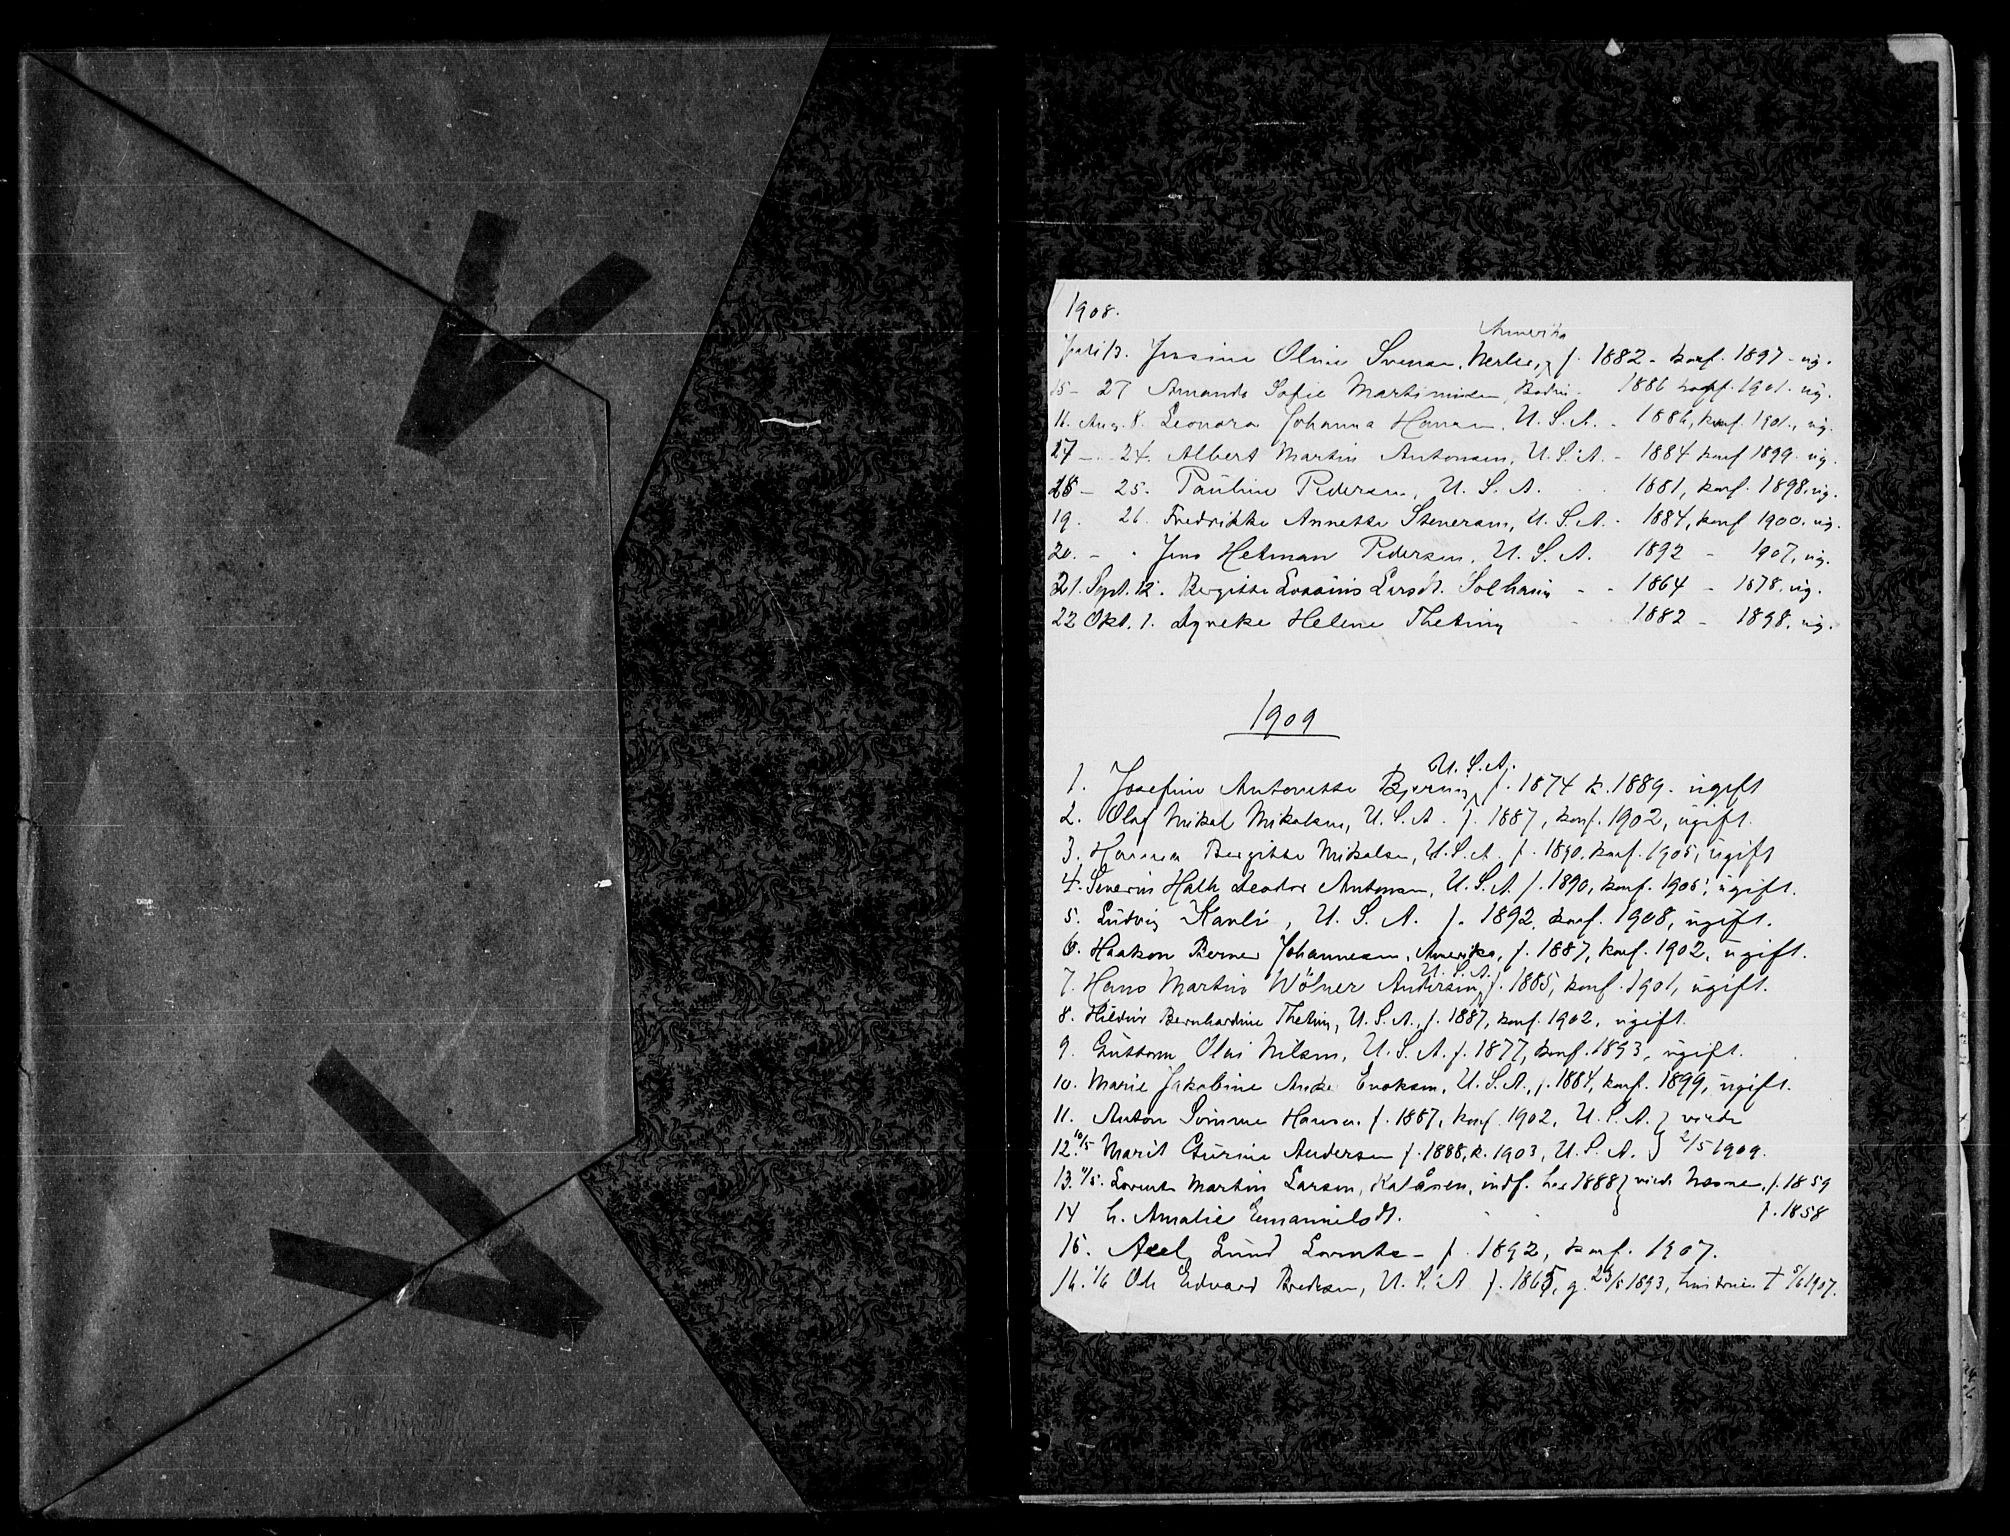 1908.
Amerika
Jusine Oline Svensen, f. 1882 - konf. 1897 - ug.
15 - 27 Amanda Sofie Martinusen, Bodin. 1886 konf. 1901. ug.
16. Aug. 8. Leonora Johanna Hansen, U.S.A. - 1886, konf. 1901, ug.
27 - 24. Albert Martin Antonsen, U.S.A. - 1884 konf 1899. ug.
25. Pauline Pedersen, U.S.A. 1881, konf. 1898. ug.
19. 26. Fredrikke Annette Stenersen, U.S.A. - 1884, konf 1900. ug.
20. - Jens Hetman Pedersen, U.S.A. 1892 - 1907, ug.
21. Sept. 12. Bergitte Larsdt. Solhaug - - 1864 - 1878. ug.
22 Okt. 1. Helene Theting 1882 - 1898. ug.
1909
U.S.A.
1. Josefine Antonette f. 1874 k. 1889. ugift
2. Olaf Mikal Mikalsen, U.S.A. f. 1887, konf. 1902, ugift.
3. Hanna Bergitte Mikalsen, U.S.A. f. 1890. konf. 1905, ugift
4. Severin Antonsen, U.S.A. f. 1890, konf. 1905, ugift.
5. Ludvig Kavli, U.S.A. f. 1892, konf. 1908, ugift.
6. Haakon Berner Johannesen, Amerika, f. 1887, konf. 1902, ugift.
U.S.A.
7. Hans Martin Wölner Andersen, f. 1885, konf. 1901, ugift.
8. Hildur Bernhardine Theting, U.S.A., f. 1887, konf. 1902, ugift.
9. Guttorm Olai Nilsen, U.S.A. f. 1877, konf. 1893, ugift.
10. Marie Jakobine Enoksen, U.S.A., f. 1884, konf. 1899, ugift.
11. Anton Sømme Hansen f. 1887, konf. 1902, U.S.A. } viede
12. 10/5 Marit Gurine Andersen f. 1888, k. 1903, U.S.A. } 2/5 1909.
13. Lorents Martin Larsen, indf. her 1888 } viede Nesne, f. 1859
14 h. Amalie Emanuelsdt. f. 1858
15. Axel Lund Lorents - f. 1892, konf. 1907.
16. 1/6 Ole Edvard Bredesen, U.S.A f. 1865, g. 1893, hustruen † 1907.